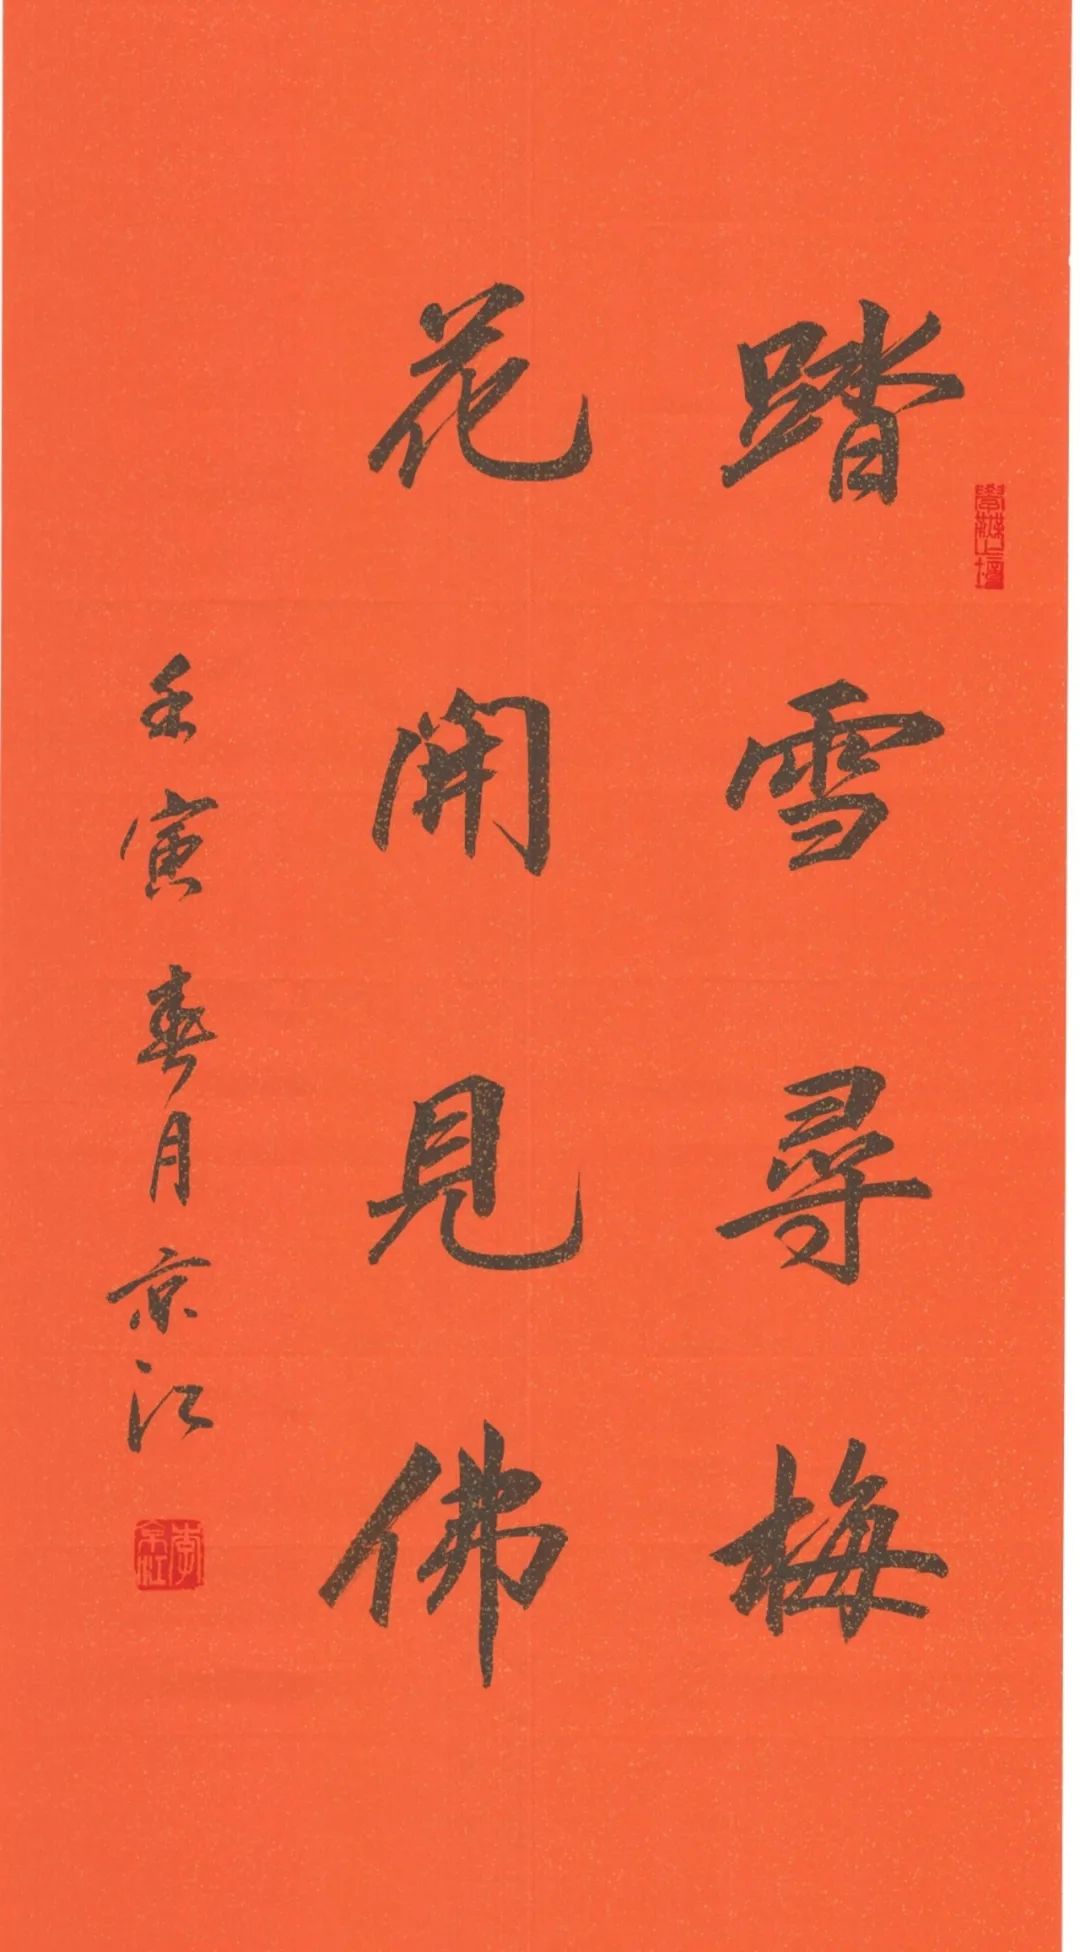 踏雪尋梅
花開見佛
壬寅春月京江
李京江